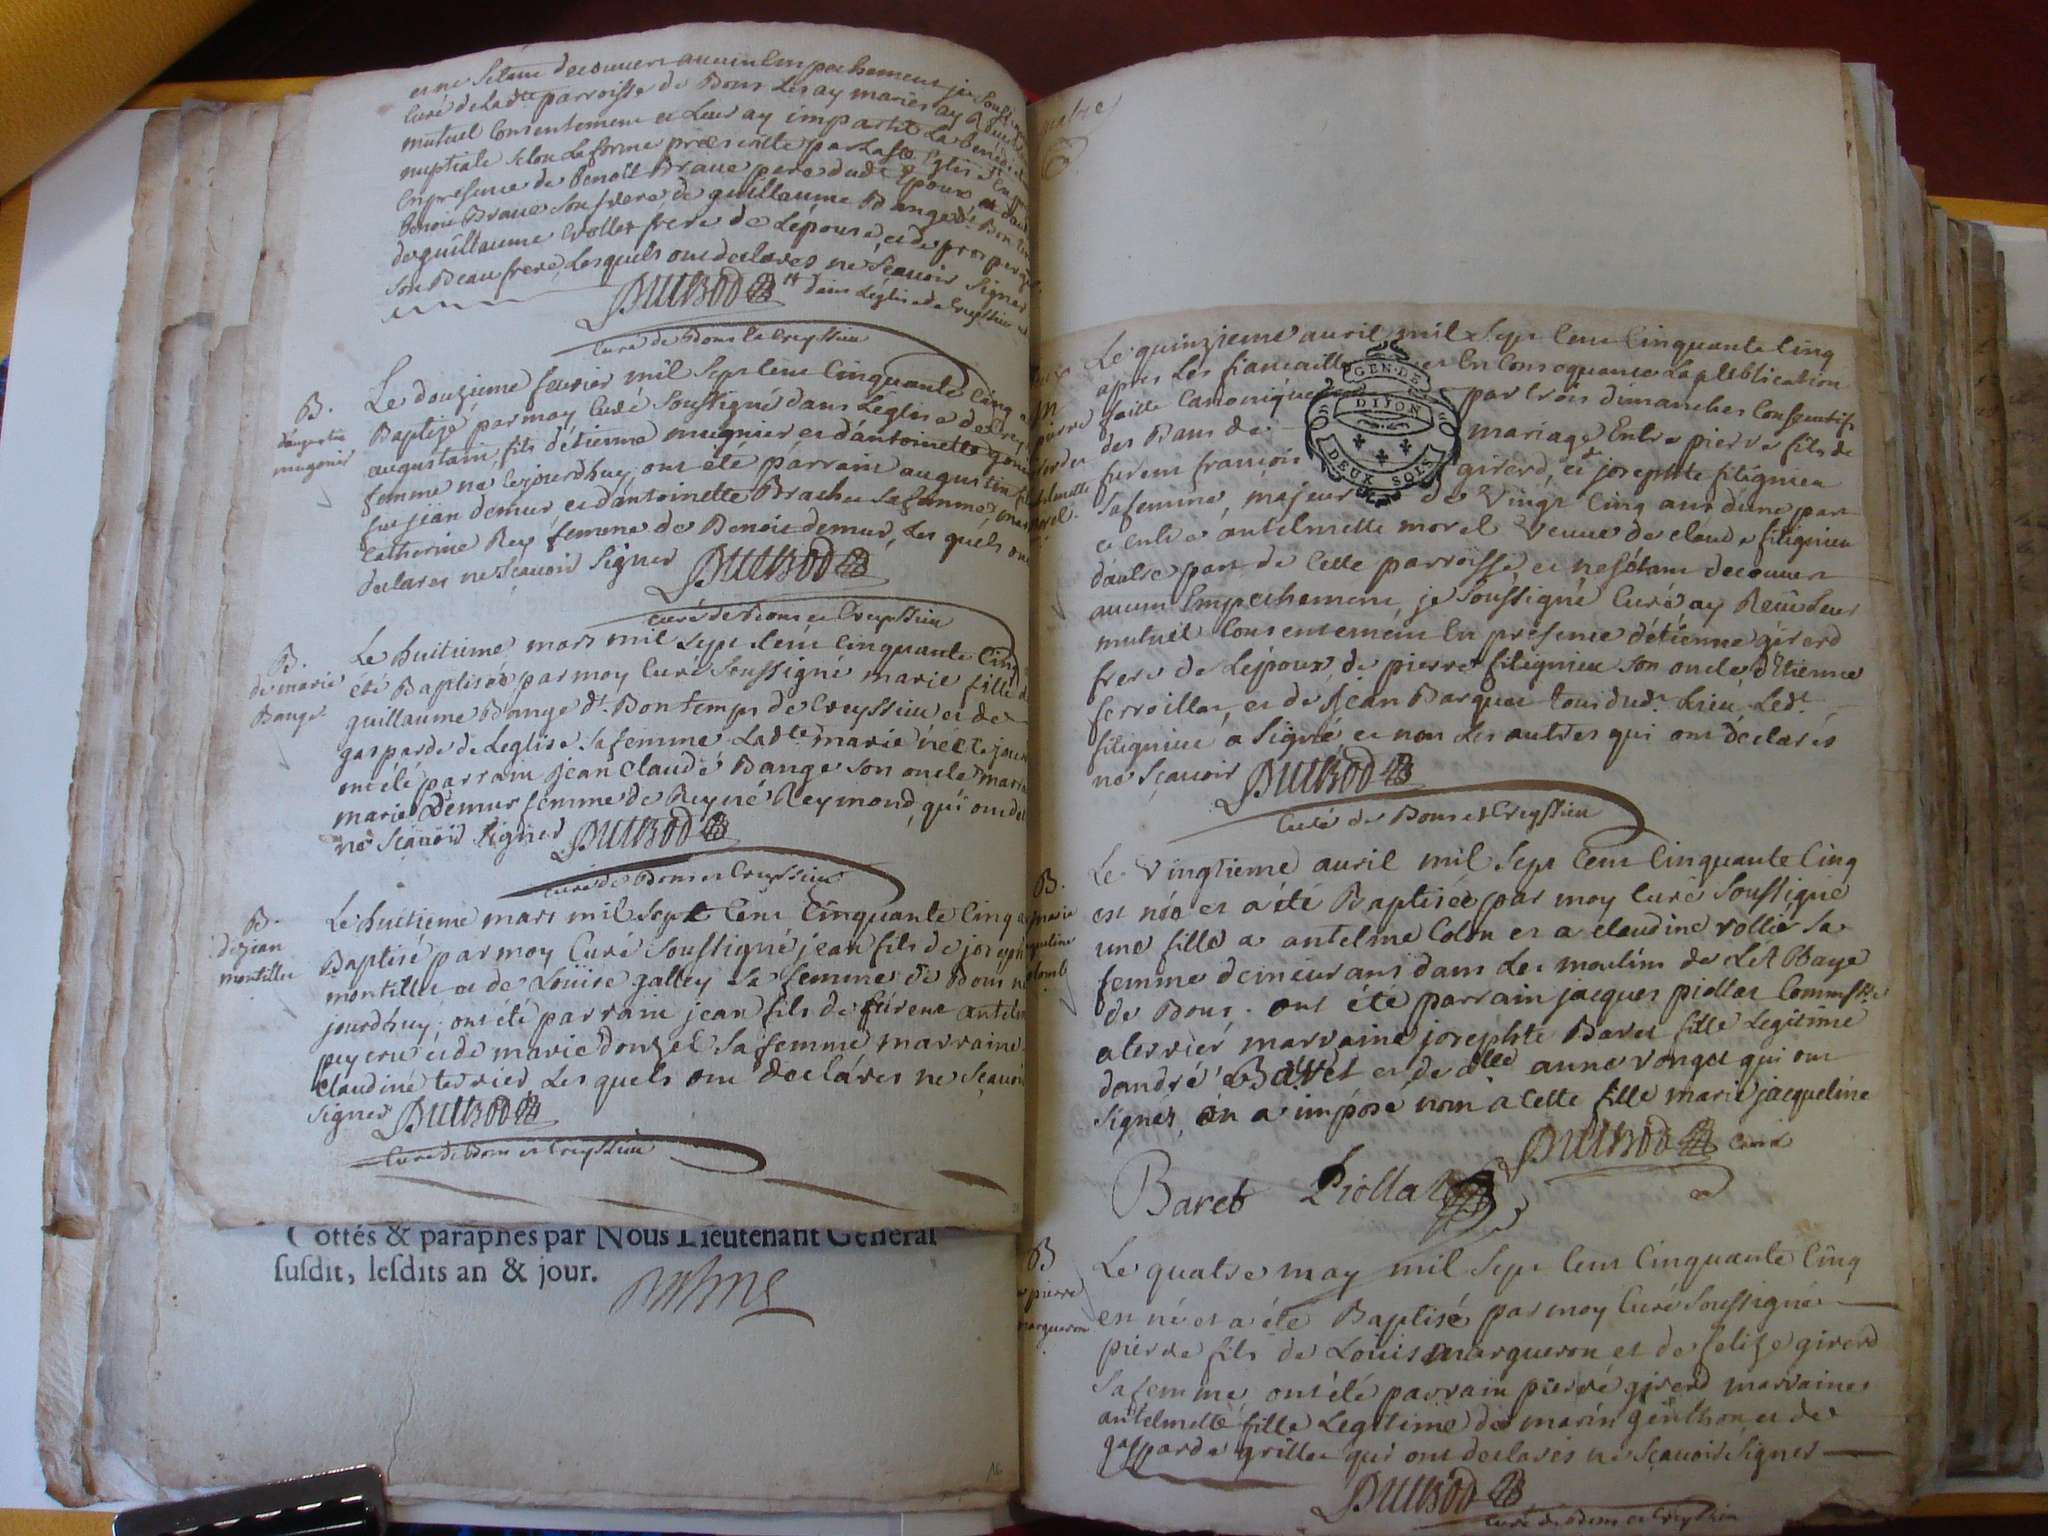 et ne s'étant decouvert aucun Empechement je soussigné
Curé de ladte parroisse de Bons Les ay mariés ay
mutuel Consentement et Leur ay imparti La benedi
nuptiale selon La forme préescritte par La Ste Eglise
En presence de benoît Brave pere dudt Epoux
benoit Brave son frere de guillaume Bange dt Bon
de guillaume frere de L'épouse, et de prosper
son Beau frere, Lesquels ont declarés ne sçavoir signer
Dutrod dans L'église de Creyssieu
Curé de Bons et Creyssieu
B.
d'augustin
mugnier
Le douzieme fevrier mil sept Cent Cinquante Cinq a
Baptizé par moy Curé soussigné dans L'église de Crey
augustain fils d'étienne mugnier et d'antoinette
femme né Cejourdhuy, ont été parrain augustin fils
feu jean demur, et d'antoinette Brachet sa femme, mar
Catherine Rey femme de Benoit demur, Les quels ont
declarés ne sçavoir signer Dutrod
Curé de Bons et Creyssieu
B.
de marie
Bange
Le huitieme mars mil sept Cent Cinquante Cinq
été Baptisée par moy Curé soussigné marie fille de
guillaume Bange dt Bontemps de Creyssieu et de
gasparde de Leglise sa femme Ladte marie née Le jour
ont été parrain jean Claude Bange son oncle marr
marie Demur femme de Reyné Reymond, qui ont de
ne sçavoir signer Dutrod
Curé de Bons et Creyssieu
B.
de jean
montillet
Le huitieme mars mil sept Cent Cinquante Cinq a
Baptisé par moy Curé soussigné jean fils de joseph
montillet et de Louise galley sa femme de Bons né
jourdhuy; ont été parrain jean fils de antel
et de marie donzel sa femme marraine
Claudine terrier, Les quels ont declarés ne sçavoir
signer Dutrod
Curé de Bons et Creyssieu
Cottés & paraphés par Nous Lieutenant General
susdit, lesdits an & jour.
16
Le quinzieme avril mil sept Cent Cinquante Cinq
apres Les fiancailles et En Consequance La publication
faitte Canonique par trois dimanches Consecutifs
des Bans de mariage Entre pierre fils de
furent francois girerd, et josephte filignieu
sa femme, majeur de vingt Cinq ans d'une part
et Entre antelmette morel veuve de claude filignieu
d'autre part de Cette parroisse, et ne s'étant decouvert
aucun Empechement, je soussigné Curé ay Reçu Leur
mutuel Consentement En présence d'étienne girerd
frere de L'époux, de pierre filignieu son oncle d'Etienne
ferroillet, et de Jean Barquet tous dudt Lieu, Ledt
filignieu a signé et non Les autres qui ont declarés
ne sçavoir Dutrod
Curé de Bons et Creyssieu
GEN·DE
DIJON
DEUX SOLS
B.
marie
jaqueline
Colomb
Le vingtieme avril mil sept Cent Cinquante Cinq
est née et a été Baptisée par moy Curé soussigné
une fille a antelme Colon et a claudine rollier sa
femme demeurans dans Les moulins de L'Abbaye
de Bons. ont été parrain jacques piollat Commissre
a terrier marraine josephte Baret fille Legitime
d'andré Baret et de dlle anne ronget qui ont
signés, on a imposé nom a Cette fille marie jacqueline
Dutrod Curé
Baret Piollat
B
pierre
margueron
Le quatre may mil sept Cent Cinquante Cinq
est né et a été Baptisé par moy Curé soussigné
pierre fils de Louis margueron et de felize girerd
sa femme, ont été parrain pierre girerd marraine
antelmette fille Legitime de marin genthon et de
gasparde grillet qui ont declarés ne sçavoir signer
Dutrod
Curé de Bons et Creyssieu